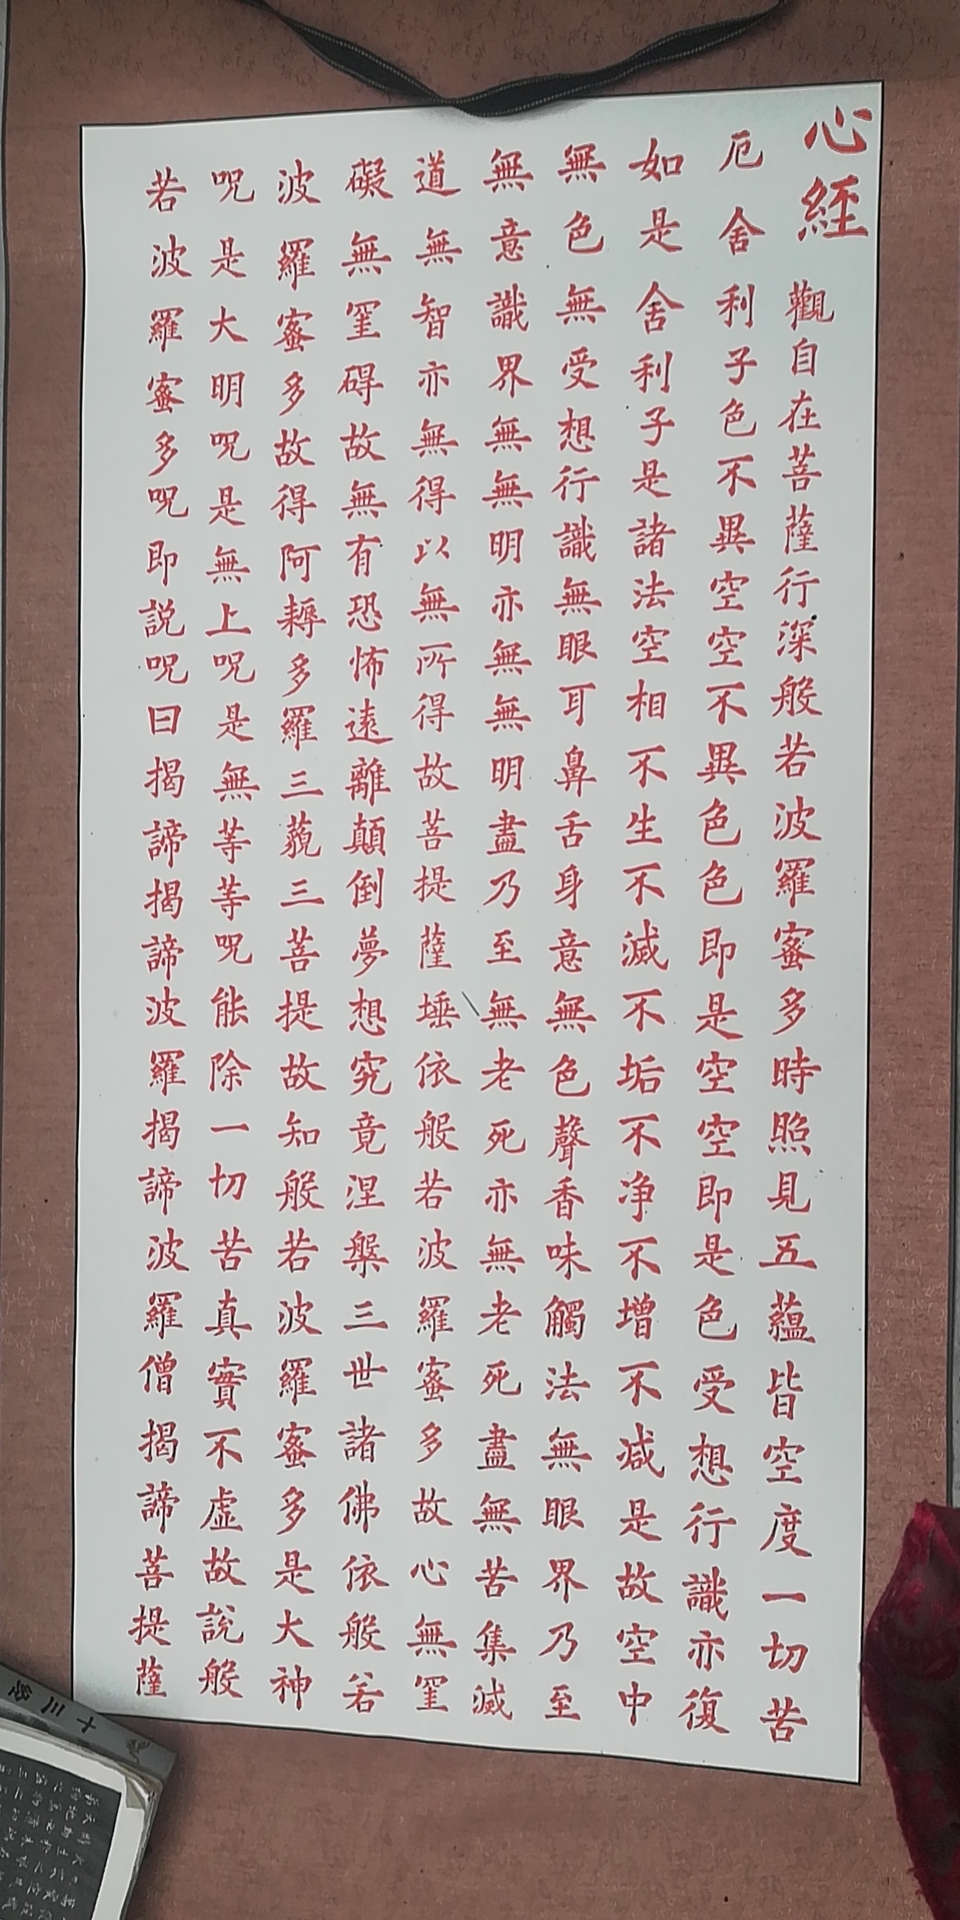 心經 觀自在菩薩行深般若波羅蜜多時照見五蘊皆空度一切苦
厄舍利子色不異空空不異色色即是空空即是色受想行識亦復
如是舍利子是諸法空相不生不滅不垢不净不增不减是故空中
無色無受想行識無眼耳鼻舌身意無色聲香味觸法無眼界乃至
無意識界無無明亦無無明盡乃至無老死亦無老死盡無苦集滅
道無智亦無得以無所得故菩提薩埵依般若波羅蜜多故心無罣
礙無罣碍故無有恐怖遠離顛倒夢想究竟涅槃三世諸佛依般若
波羅蜜多故得阿耨多羅三藐三菩提故知般若波羅蜜多是大神
呪是大明呪是無上呪是無等等呪能除一切苦真實不虛故說般
若波羅蜜多呪即説呪曰揭諦揭諦波羅揭諦波羅僧揭諦菩提薩
十三經